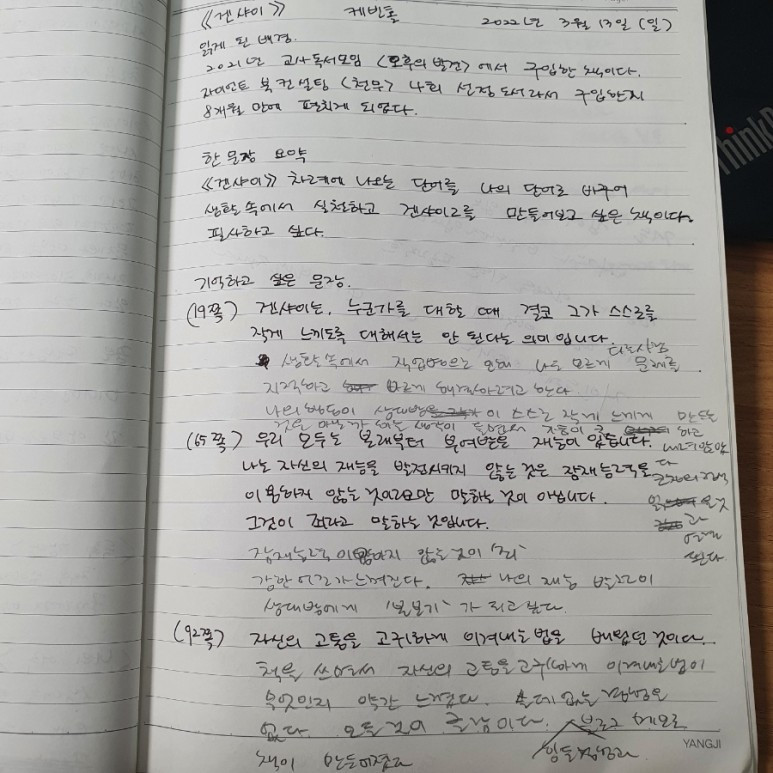 《겐샤이》 케빈홀 2022년 3월 13일 (일)
읽게 된 배경.
2021년 교사독서모임 <오후의 발견>에서 구입한 책이다.
자이언트 북 컨설팅 <천무> 나회 선정도서라서 구입한지
8개월 만에 펼치게 되었다.
한 문장 요약
《겐샤이》 차례에 나오는 단어를 나의 단어로 바꾸어
생활 속에서 실천하고 겐샤이2를 만들어보고 싶은 책이다.
필사하고 싶다.
기억하고 싶은 문장.
(19쪽) 겐샤이는, 누군가를 대할 때 결코 그가 스스로를
작게 느끼도록 대해서는 안 된다는 의미입니다.
생활 속에서 직업병으로 인해 나도 모르게 다른사람 문제를
지적하고 바르게 해결하려고 한다
나의 행동이 상대방이 스스로 작게 느끼게 만드는
것은 아닐까 하는 생각이 들면서
(65쪽) 우리 모두는 본래부터 부여받은 재능이 있습니다.
나는 자신의 재능을 발전시키지 않는 것은 잠재능력을
이용하지 않는 것이라고만 말하는 것이 아닙니다.
그것이 죄라고 말하는 것입니다.
잠재능력 이용하지 않는 것이 '죄'
강한 어조가 느껴진다. 나의 재능 발견이
상대방에게 '본보기'가 되고 싶다.
(92쪽) 자신의 고통을 고귀하게 이겨내는 법을 배웠던 것이다.
책을 쓰면서 자신의 고통을 고귀하게 이겨내는 법이
무엇인지 약간 느꼈다. 쓸데없는 경험은
없다. 모든 것이 글감이다. 블로그 메모로
책이 만들어졌고 힘든 경험과
YANGJI
Think